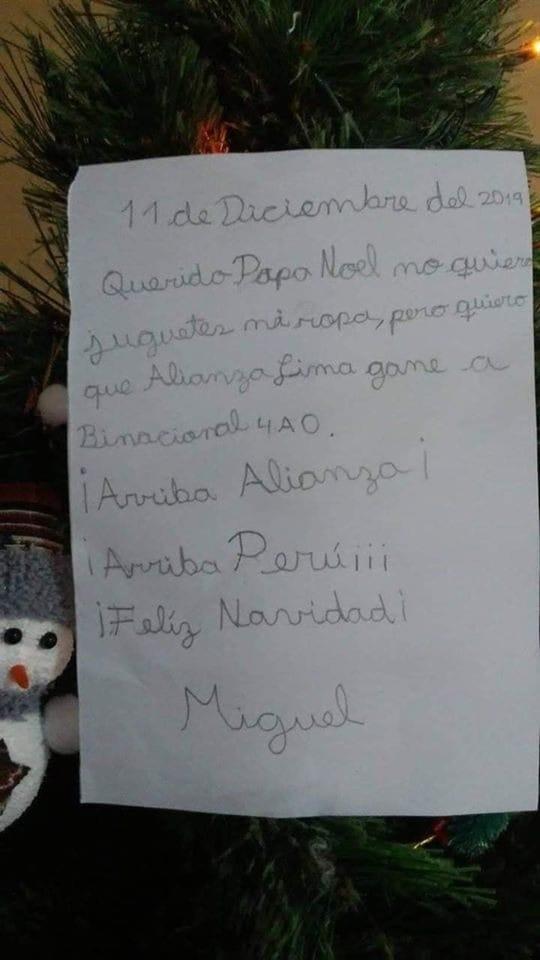 11 de Diciembre del 2019
Querido Papa Noel no quiero
juguetes ni ropa, pero quiero
que Alianza Lima gane a
Binacional 4 A 0.
¡Arriba Alianza¡
¡Arriba Perú¡¡¡
¡Felíz Navidad¡
Miguel